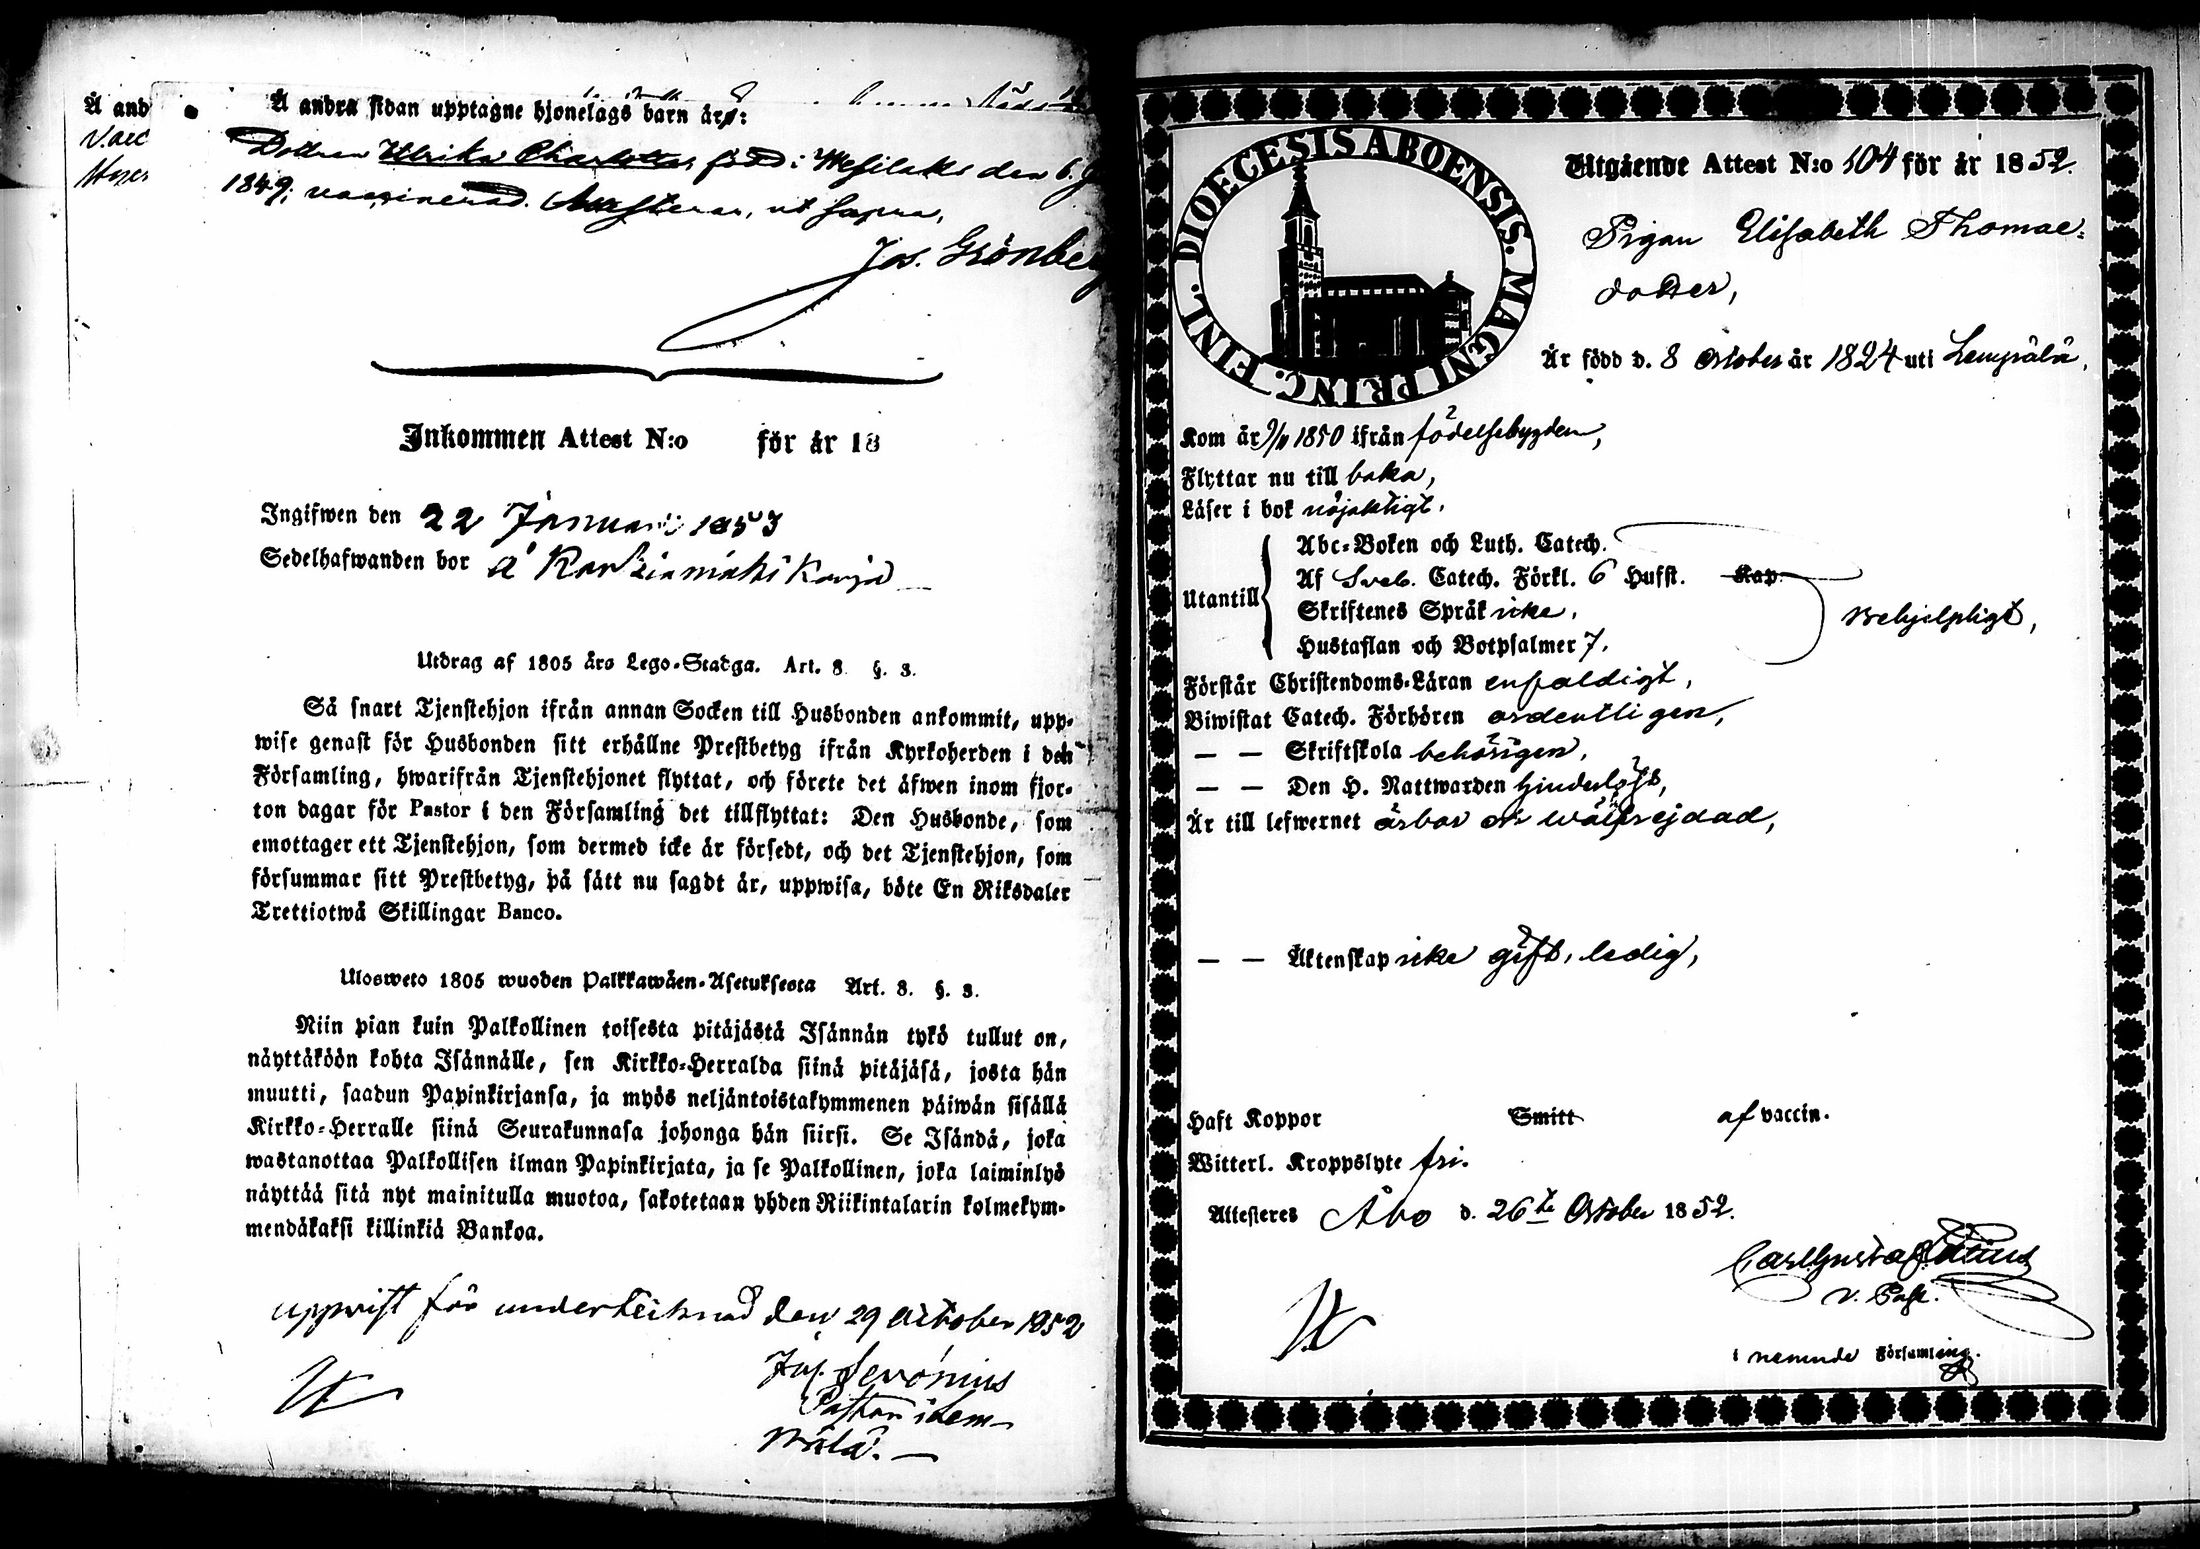 Å and
Vacc
Å andra sidan upptagne hjonelags barn äro:
Dottren Ulrika Charlotta, född i Wesilaks den 6.
1849, vaccinerad. Attesterar, ut supra,
Jos. Grönbe
Inkommen Attest N:o för år 18
Ingifwen den 22 Januari 1853
Sedelhafwanden bor å
Utdrag af 1805 års Lego-Stadga. Art. 8 §. 3.
Så snart Tjenstehjon ifrån annan Socken till Husbonden ankommit, upp-
wise genast för Husbonden sitt erhållne Prestbetyg ifrån Kyrkoherden i den
Församling, hwarifrån Tjenstehjonet flyttat, och förete det äfwen inom fjor-
ton dagar för Pastor i den Församling det tillflyttat: Den Husbonde, som
emottager ett Tjenstehjon, som dermed icke är försedt, och det Tjenstehjon, som
försummar sitt Prestbetyg, på sätt nu sagdt är, uppwisa, böte En Riksdaler
Trettiotwå Skillingar Banco.
Ulosweto 1805 wuoden Palkkawäen-Asetuksesta Art. 8. §. 3.
Niin pian kuin Palkollinen toisesta pitäjästä Isännän tykö tullut on,
näyttäköön kohta Isännälle, sen Kirkko-Herralda siinä pitäjäsä, josta hän
muutti, saadun Papinkirjansa, ja myös neljäntoistakymmenen päiwän sisällä
Kirkko-Herralle siinä Seurakunnasa johonga hän siirsi. Se Isändä, joka
wastanottaa Palkollisen ilman Papinkirjata, ja se Palkollinen, joka laiminlyö
näyttää sitä nyt mainitulla muotoa, sakotetaan yhden Riikintalarin kolmekym-
mendäkaksi killinkiä Bankoa.
uppwist för undertecknad den 29 October 1852
Jos. Serónius
Pastor i Lem-
päälä.
DIOECESIS ABOENSIS. MAGNI PRINC. FINL.
Utgående Attest N:o 104 för år 1852.
Pigan Elisabeth Thomae-
dotter,
Är född d. 8 October år 1824 uti Lempälä,
Kom år 9/11 1850 ifrån födelsebygden,
Flyttar nu till baka,
Läser i bok nöjaktigt.
Utantill
Abc-Boken och Luth. Catech.
Af Sveb. Catech. Förkl. 6 Hufst. Kap
Skriftenes Språk icke,
Hustaflan och Botpsalmer 7.
Behjelpligt,
Förstår Christendoms-Läran enfaldigt,
Biwistat Catech. Förhören ordentligen,
— — Skriftskola behörigen,
— — Den H. Nattwarden hinderlöst,
Är till lefwernet ärbar och wälfrejdad,
— — Äktenskap icke gift, ledig,
Haft Koppor Smitt af vaccin.
Witterl. Kroppslyte fri.
Attesteres Åbo d. 26te October 1852.
Carl Gustaf
v. Past.
i nemnde Församling.